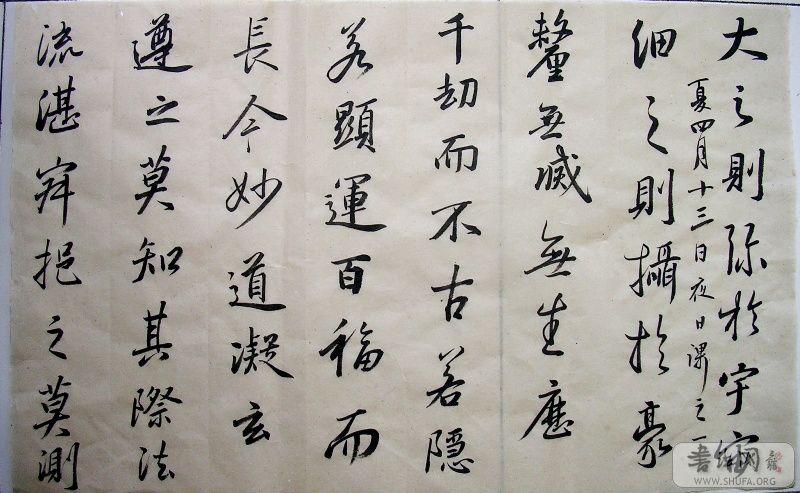 大之則弥於宇宙
夏四月十三日夜日課之一
細之則攝於豪
釐無滅無生歷
千劫而不古若隱
若顯運百福而
長今妙道凝玄
遵之莫知其際法
流湛寂挹之莫測
书法网
WWW.SHUFA.ORG